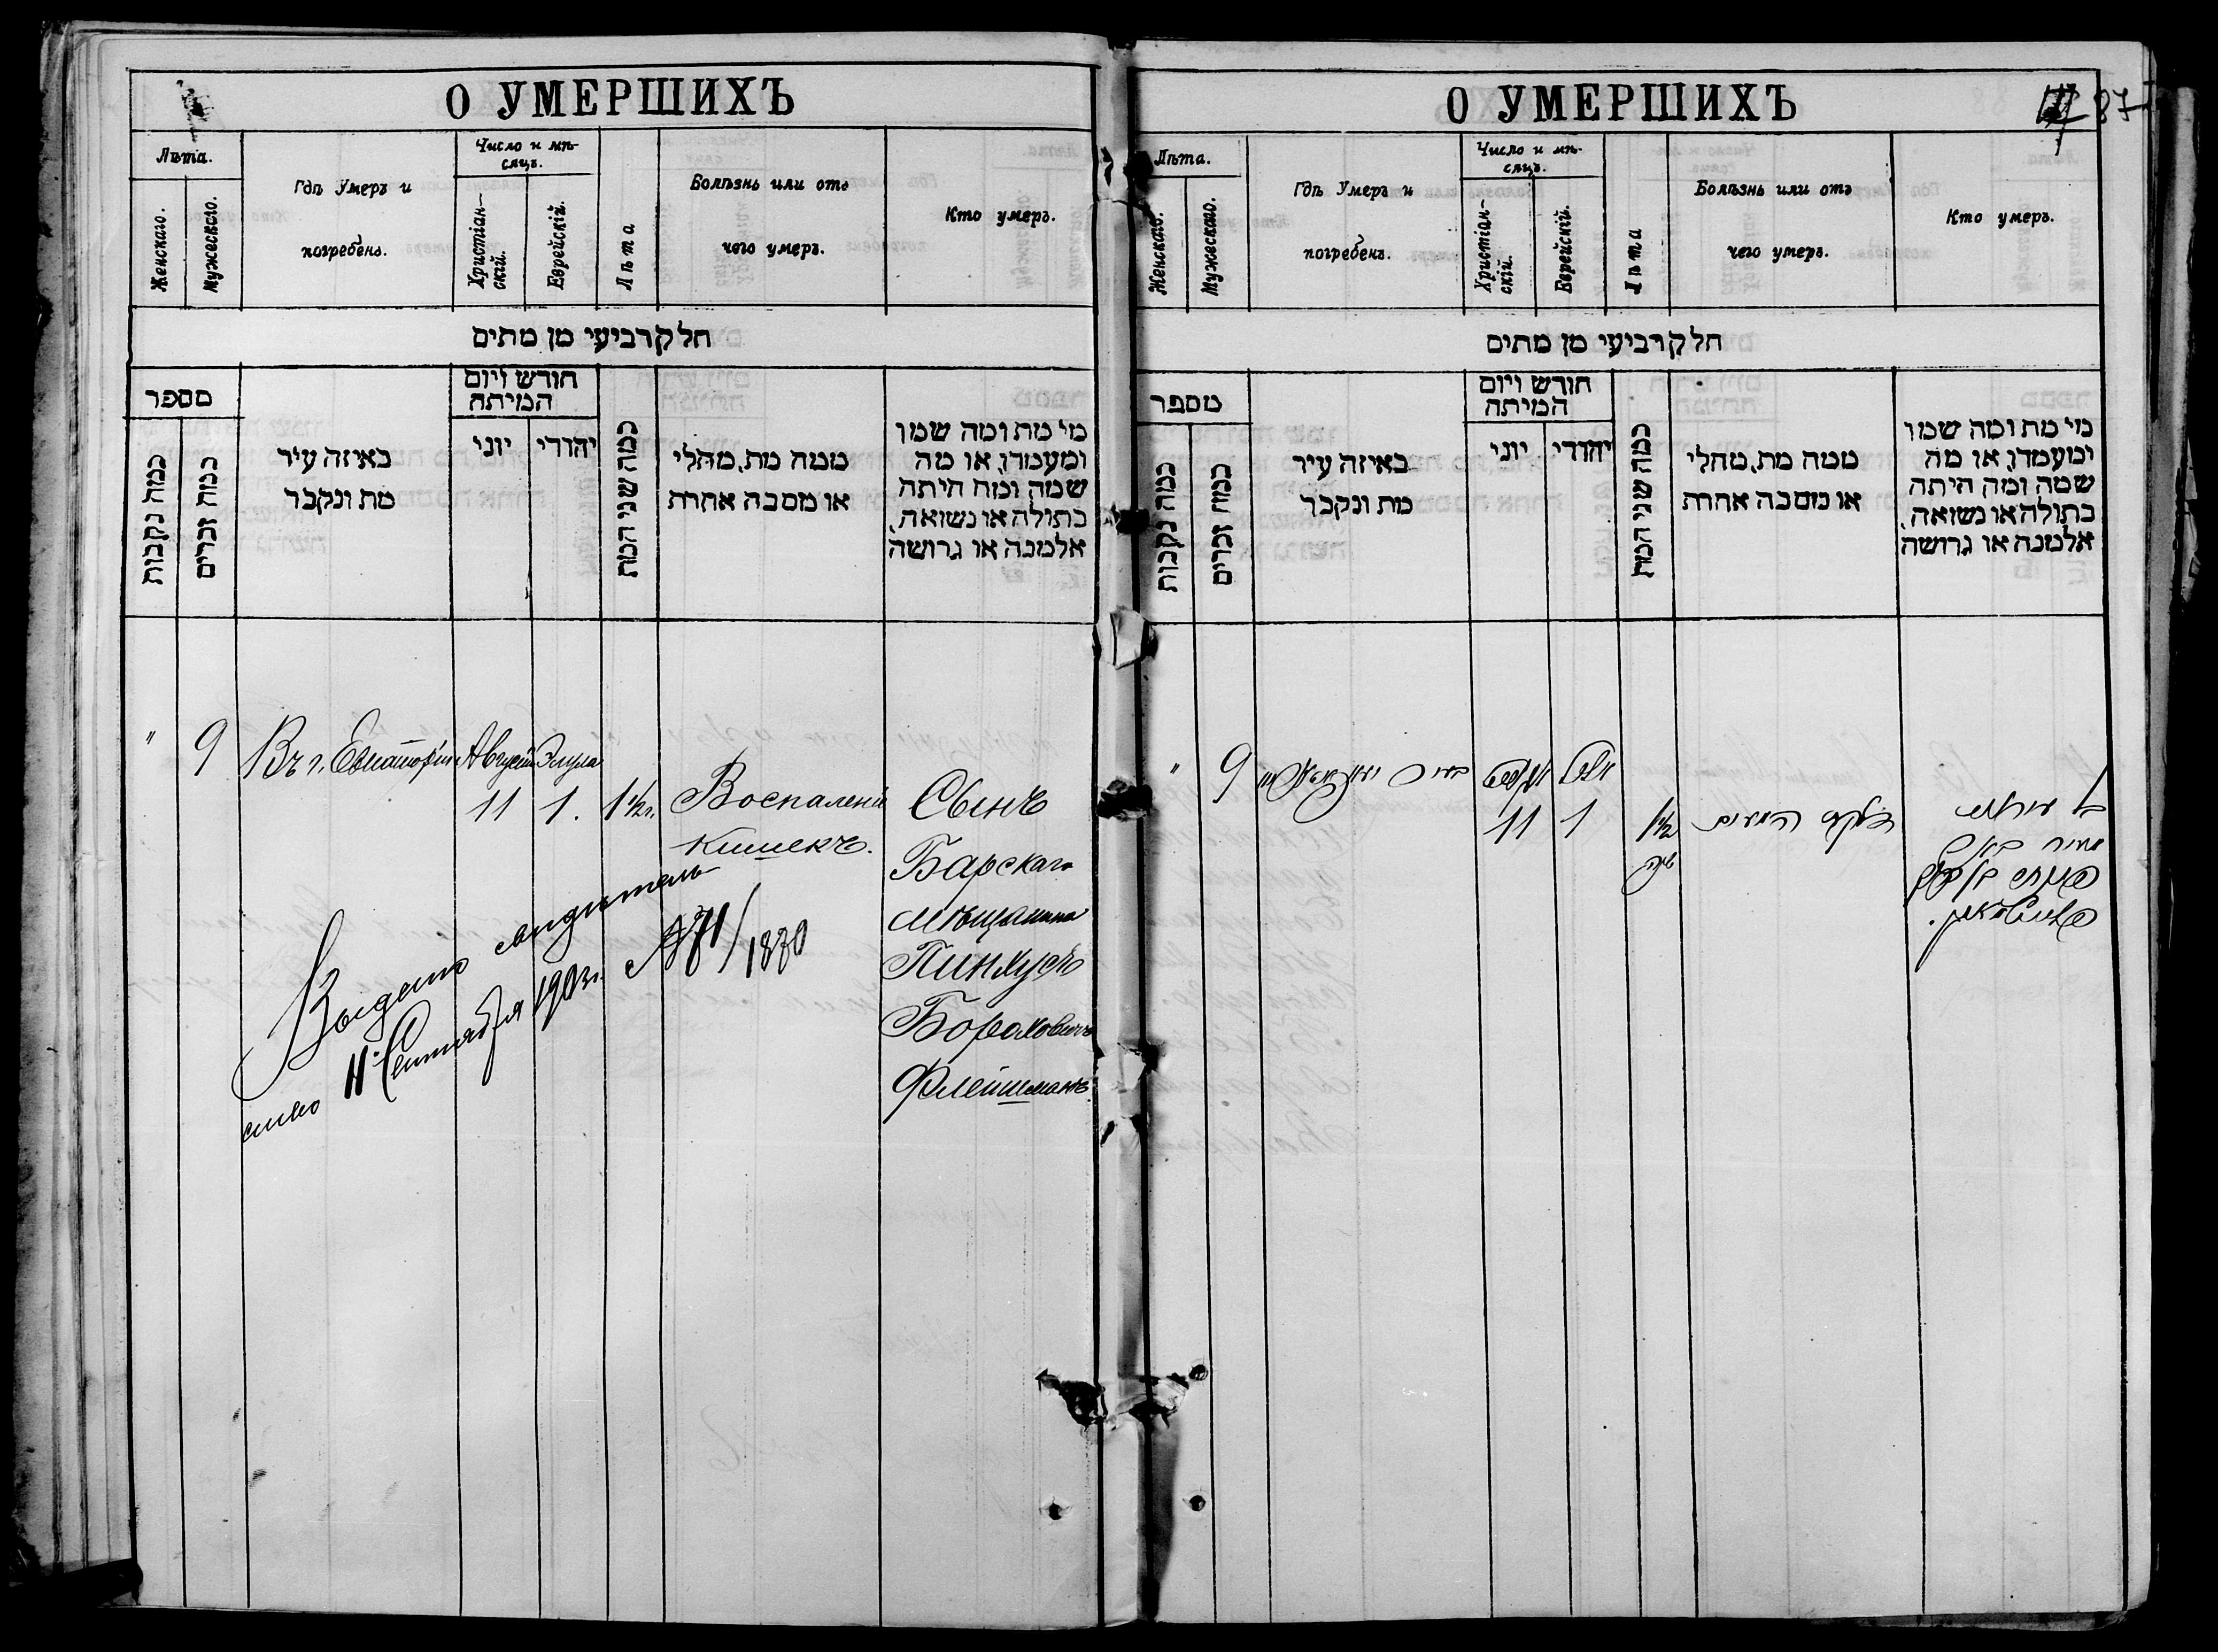 О УМЕРШИХЪ
Лѣта.
Женскаго.
Мужескаго.
Гдѣ Умеръ и
погребенъ.
Число и мѣ-
сяцъ.
Христіан-
скій.
Еврейскій.
Лѣта
Болѣзнь или отъ
чего умеръ.
Кто умеръ.
חלק רביעי מן מתים
מספר
כמה נקבות
כמה זכרים
באיזה עיר
מת ונקבר
חודש ויום
המיתה
יוני
יהודי
כמה שני המת
ממה מת, מחלי
או מסבה אחרת
מי מת ומה שמו
ומעמדו, או מה
שמה ומה היתה
בתולה או נשואה,
אלמנה או גרושה
" 9 Въ г. Евпаторіи Августа Элула
11 1. 1½ г. Воспаленіе Сынъ
кишекъ.
Барскаго
мѣщанина
Пинхусъ
Бороховичъ
Флейшманъ.
Выдано свидѣтель-
ство 11 Сентября 1903 г. №
О УМЕРШИХЪ
87
Лѣта.
Женскаго.
Мужескаго.
Гдѣ Умеръ и
погребенъ.
Число и мѣ-
сяцъ.
Христіан-
скій.
Еврейскій.
Лѣта
Болѣзнь или отъ
чего умеръ.
Кто умеръ.
חלק רביעי מן מתים
מספר
כמה נקבות
כמה זכרים
באיזה עיר
מת ונקבר
חודש ויום
המיתה
יוני
יהודי
כמה שני המת
ממה מת, מחלי
או מסבה אחרת
מי מת ומה שמו
ומעמדו, או מה
שמה ומה היתה
בתולה או נשואה,
אלמנה או גרושה
" 9 בעיר אווגוסט אלול
11 1 1½ המעים